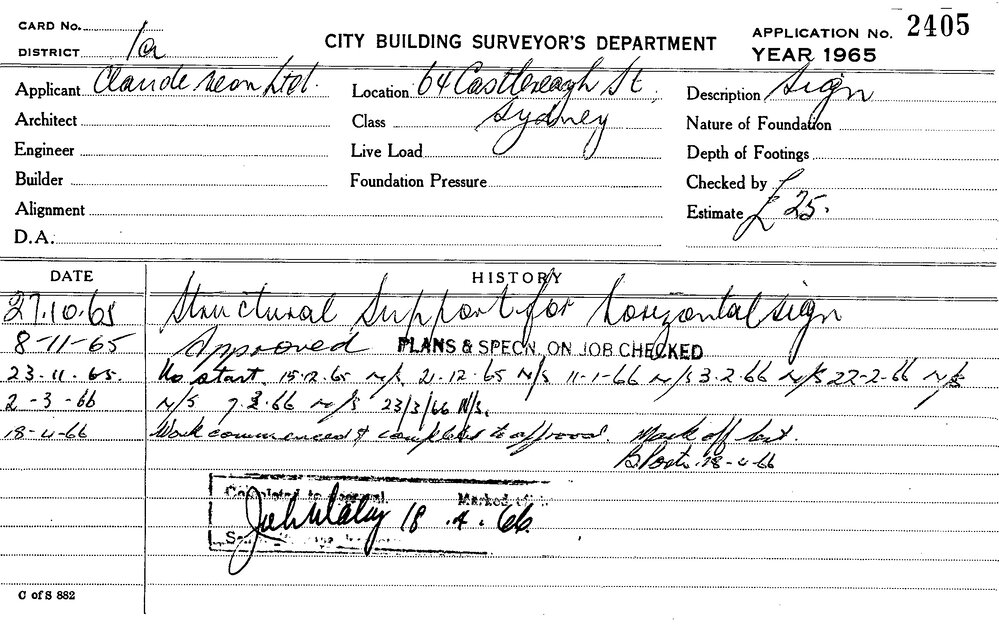 CARD No.
DISTRICT 1a
CITY BUILDING SURVEYOR'S DEPARTMENT
APPLICATION No. 2405
YEAR 1965
Applicant Claude Neon Ltd. Location 64 Castlereagh St, Description Sign
Architect Class Sydney Nature of Foundation
Engineer Live Load Depth of Footings
Builder Foundation Pressure Checked by
Alignment Estimate £ 25.
D.A.
DATE HISTORY
27.10.65 Structural Support for horizontal sign
8-11-65 Approved PLANS & SPECN. ON JOB CHECKED
23-11-65. No start. 15.12.65 N/S, 21.12.65 N/S 11-1-66 N/S 3.2.66 N/S 22-2-66 N/S
2-3-66 N/S 7.3.66 N/S 23/3/66 N/S.
18-4-66 Work commenced & completed to approval. Mark off
18-4-66
Completed to approval. Marked off
18.4.66
C of S 882